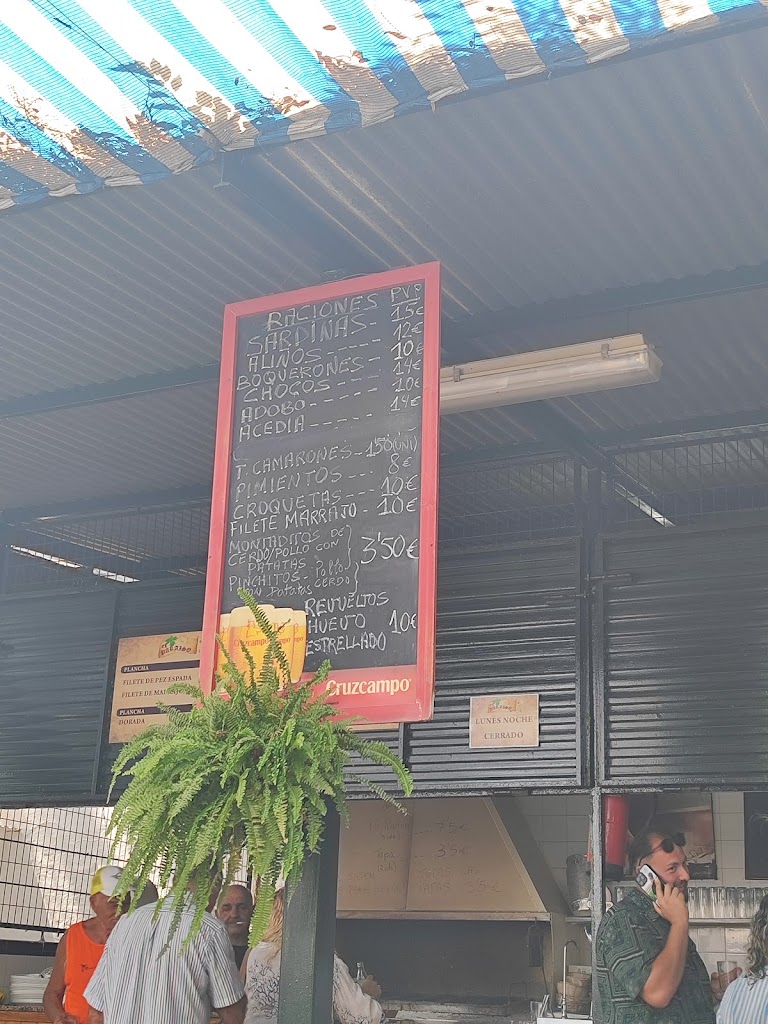 RACIONES PVP
SARDINAS- 15€
ALIÑOS---- 12€
BOQUERONES-- 10€
CHOCOS---- 14€
ADOBO----- 10€
ACEDIA---- 14€
T. CAMARONES-1'50(UNI)
PIMIENTOS --- 8€
CROQUETAS--- 10€
FILETE MARRAJO - 10€
MONTADITOS DE
CERDO/POLLO CON
PATATAS 3'50€
PINCHITOS - POLLO
CON PATATAS CERDO
REVUELTOS
HUEVO 10€
ESTRELLADO
Cruzcampo
Cruzcampo
PLANCHA
FILETE DE PEZ ESPADA
FILETE DE
PLANCHA
DORADA
LUNES NOCHE
CERRADO